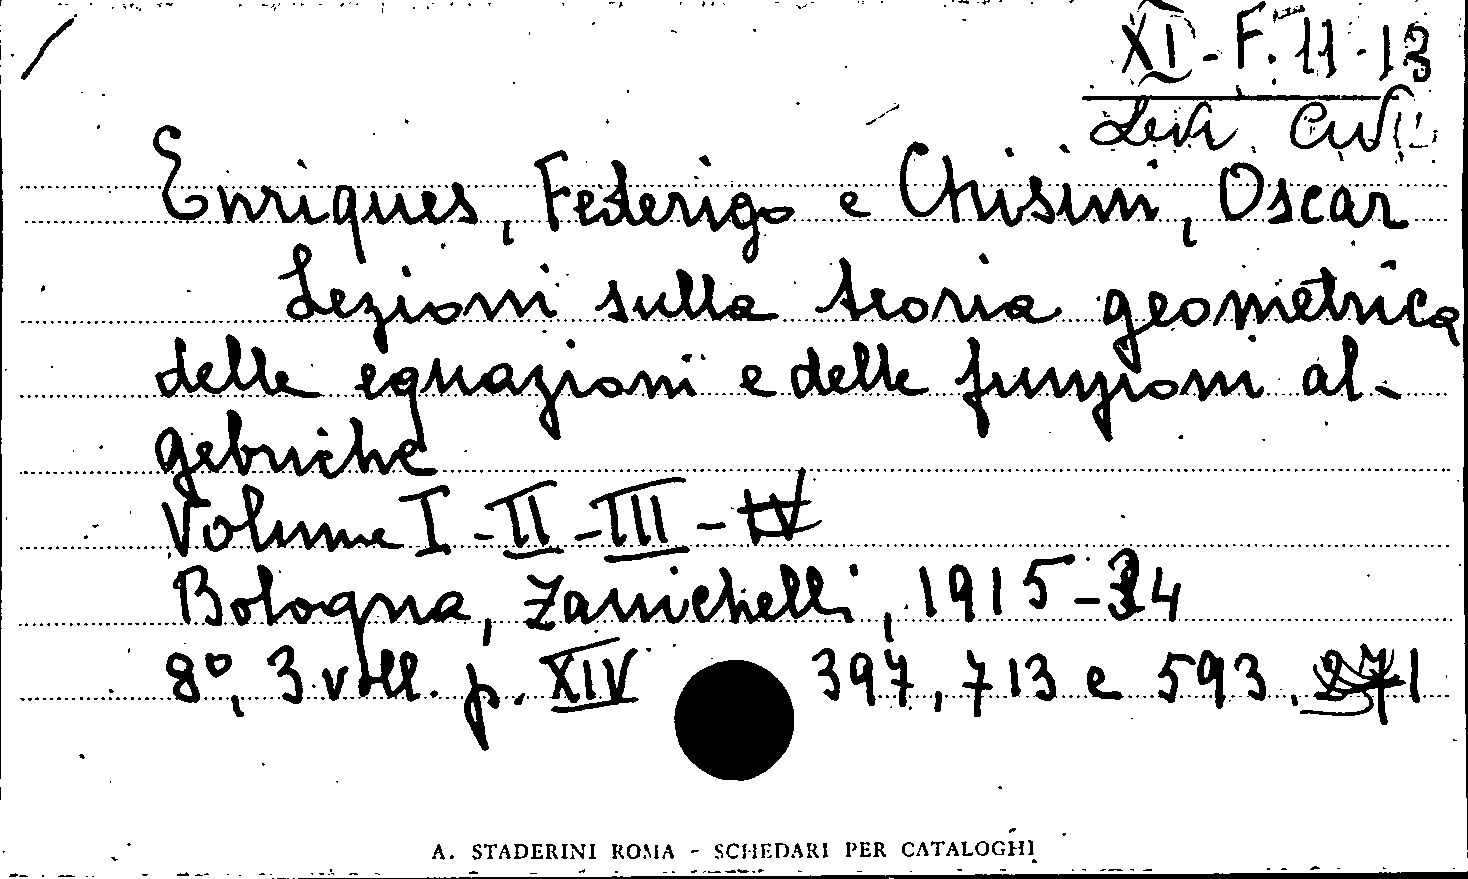 XI - F. 11-13
Levi Civita
Enriques, Federigo e Chisini, Oscar
Lezioni sulla teoria geometrica
delle equazioni e delle funzioni al-
gebriche
Volume I - II - III - IV
Bologna, Zanichelli, 1915-24
8°, 3 voll. p. XIV 397, 713 e 593.
A. STADERINI ROMA - SCHEDARI PER CATALOGHI